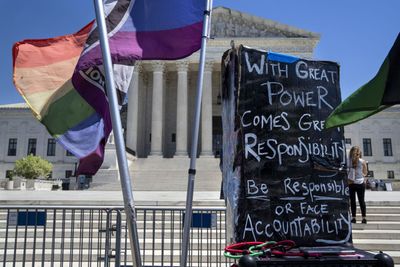 WITH GREAT
POWER
COMES GREAT
RESPONSIBILITY
BE RESPONSIBLE
OR FACE
ACCOUNTABILITY